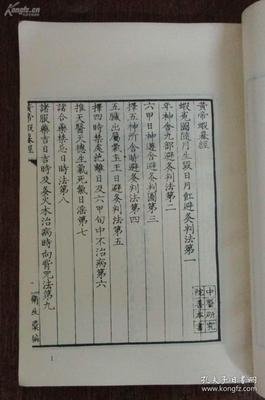 黄帝蝦蟇經
蝦蟇圖隨月生毀日月蝕避灸判法第一
年神舍九部避灸判法第二
六甲日神遊舍避灸判圖第三
擇五神所舍時避灸判法第四
五臟出屬氣主王日避灸判法第五
擇四時禁處絶離日及六甲旬中不治病第六
推天醫天德生氣死氣日淫第七
諸合藥禁忌日時法第八
諸服藥吉日吉時及灸火木治病時向背咒法第九
黄帝蝦蟇經
衛生彙編
中醫研究
院善本書
1
孔夫子旧书网